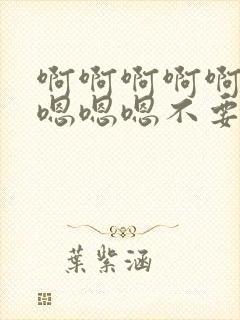 啊啊啊啊啊
嗯嗯嗯不要
葉紫涵